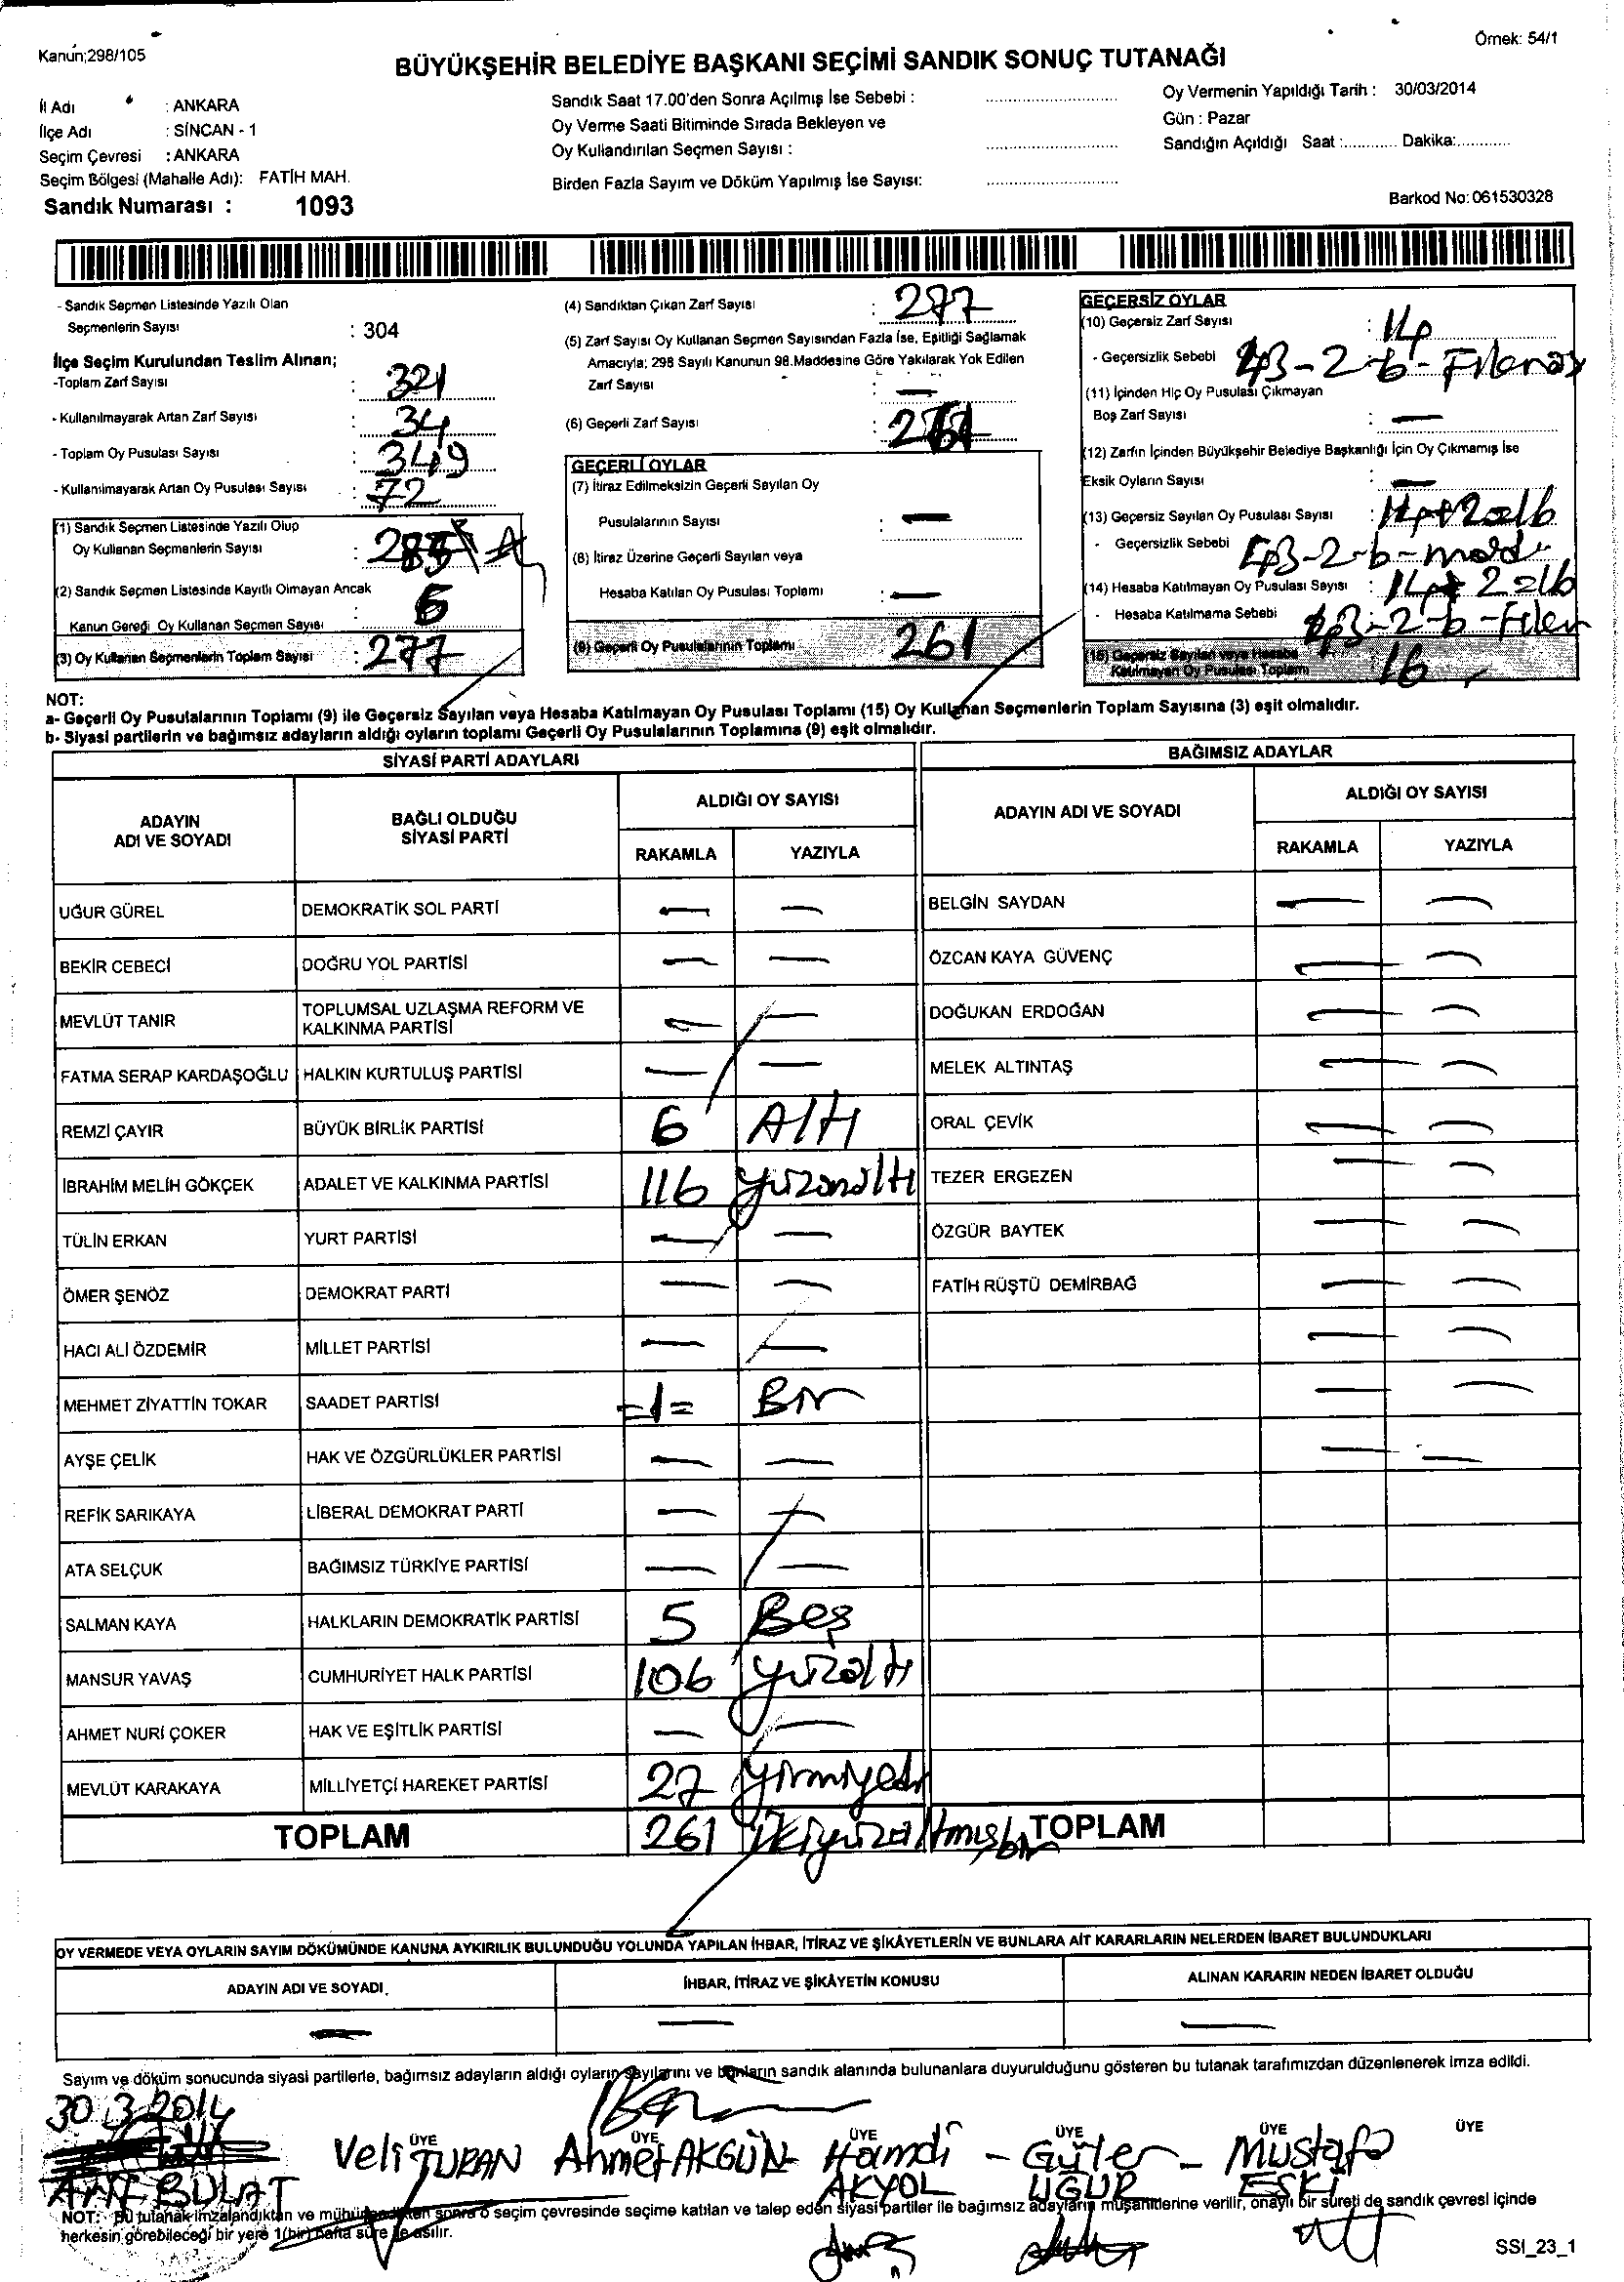 Kanun;298/105
Örnek: 54/1
BÜYÜKŞEHİR BELEDİYE BAŞKANI SEÇİMİ SANDIK SONUÇ TUTANAĞI
İl Adı : ANKARA
İlçe Adı : SİNCAN - 1
Seçim Çevresi : ANKARA
Seçim Bölgesi (Mahalle Adı): FATİH MAH.
Sandık Numarası : 1093
Sandık Saat 17.00'den Sonra Açılmış İse Sebebi :
Oy Verme Saati Bitiminde Sırada Bekleyen ve
Oy Kullandırılan Seçmen Sayısı :
Birden Fazla Sayım ve Döküm Yapılmış İse Sayısı:
Oy Vermenin Yapıldığı Tarih : 30/03/2014
Gün : Pazar
Sandığın Açıldığı Saat :............ Dakika:............
Barkod No: 061530328
- Sandık Seçmen Listesinde Yazılı Olan
Seçmenlerin Sayısı : 304
İlçe Seçim Kurulundan Teslim Alınan;
-Toplam Zarf Sayısı : 321
- Kullanılmayarak Artan Zarf Sayısı : 34
- Toplam Oy Pusulası Sayısı : 349
- Kullanılmayarak Artan Oy Pusulası Sayısı : 72
(1) Sandık Seçmen Listesinde Yazılı Olup
Oy Kullanan Seçmenlerin Sayısı :
(2) Sandık Seçmen Listesinde Kayıtlı Olmayan Ancak
Kanun Gereği Oy Kullanan Seçmen Sayısı : 6
(3) Oy Kullanan Seçmenlerin Toplam Sayısı : 277
(4) Sandıktan Çıkan Zarf Sayısı : 277
(5) Zarf Sayısı Oy Kullanan Seçmen Sayısından Fazla İse, Eşitliği Sağlamak
Amacıyla; 298 Sayılı Kanunun 98.Maddesine Göre Yakılarak Yok Edilen
Zarf Sayısı : —
(6) Geçerli Zarf Sayısı : 261
GEÇERLİ OYLAR
(7) İtiraz Edilmeksizin Geçerli Sayılan Oy
Pusulalarının Sayısı : —
(8) İtiraz Üzerine Geçerli Sayılan veya
Hesaba Katılan Oy Pusulası Toplamı : —
(9) Geçerli Oy Pusulalarının Toplamı 261
GEÇERSİZ OYLAR
(10) Geçersiz Zarf Sayısı : 14
- Geçersizlik Sebebi : 43-2-b-
(11) İçinden Hiç Oy Pusulası Çıkmayan
Boş Zarf Sayısı : —
(12) Zarfın İçinden Büyükşehir Belediye Başkanlığı İçin Oy Çıkmamış İse
Eksik Oyların Sayısı : —
(13) Geçersiz Sayılan Oy Pusulası Sayısı : 14+2=16
- Geçersizlik Sebebi 43-2-b-
(14) Hesaba Katılmayan Oy Pusulası Sayısı : 14+2=16
- Hesaba Katılmama Sebebi 43-2-b-
(15) Geçersiz Sayılan veya Hesaba
Katılmayan Oy Pusulası Toplamı 16
NOT:
a- Geçerli Oy Pusulalarının Toplamı (9) ile Geçersiz Sayılan veya Hesaba Katılmayan Oy Pusulası Toplamı (15) Oy Kullanan Seçmenlerin Toplam Sayısına (3) eşit olmalıdır.
b- Siyasi partilerin ve bağımsız adayların aldığı oyların toplamı Geçerli Oy Pusulalarının Toplamına (9) eşit olmalıdır.
SİYASİ PARTİ ADAYLARI
ADAYIN
ADI VE SOYADI
BAĞLI OLDUĞU
SİYASİ PARTİ
ALDIĞI OY SAYISI
RAKAMLA YAZIYLA
UĞUR GÜREL DEMOKRATİK SOL PARTİ — —
BEKİR CEBECİ DOĞRU YOL PARTİSİ — —
MEVLÜT TANIR TOPLUMSAL UZLAŞMA REFORM VE
KALKINMA PARTİSİ — —
FATMA SERAP KARDAŞOĞLU HALKIN KURTULUŞ PARTİSİ — —
REMZİ ÇAYIR BÜYÜK BİRLİK PARTİSİ 6 Altı
İBRAHİM MELİH GÖKÇEK ADALET VE KALKINMA PARTİSİ 116 yüzonaltı
TÜLİN ERKAN YURT PARTİSİ — —
ÖMER ŞENÖZ DEMOKRAT PARTİ — —
HACI ALİ ÖZDEMİR MİLLET PARTİSİ — —
MEHMET ZİYATTİN TOKAR SAADET PARTİSİ =1= Bir
AYŞE ÇELİK HAK VE ÖZGÜRLÜKLER PARTİSİ — —
REFİK SARIKAYA LİBERAL DEMOKRAT PARTİ — —
ATA SELÇUK BAĞIMSIZ TÜRKİYE PARTİSİ — —
SALMAN KAYA HALKLARIN DEMOKRATİK PARTİSİ 5 Beş
MANSUR YAVAŞ CUMHURİYET HALK PARTİSİ 106 yüzaltı
AHMET NURİ ÇOKER HAK VE EŞİTLİK PARTİSİ — —
MEVLÜT KARAKAYA MİLLİYETÇİ HAREKET PARTİSİ 27 yirmiyedi
TOPLAM 261 ikiyüzaltmışbir
BAĞIMSIZ ADAYLAR
ADAYIN ADI VE SOYADI
ALDIĞI OY SAYISI
RAKAMLA YAZIYLA
BELGİN SAYDAN — —
ÖZCAN KAYA GÜVENÇ — —
DOĞUKAN ERDOĞAN — —
MELEK ALTINTAŞ — —
ORAL ÇEVİK — —
TEZER ERGEZEN — —
ÖZGÜR BAYTEK — —
FATİH RÜŞTÜ DEMİRBAĞ — —
TOPLAM
OY VERMEDE VEYA OYLARIN SAYIM DÖKÜMÜNDE KANUNA AYKIRILIK BULUNDUĞU YOLUNDA YAPILAN İHBAR, İTİRAZ VE ŞİKÂYETLERİN VE BUNLARA AİT KARARLARIN NELERDEN İBARET BULUNDUKLARI
ADAYIN ADI VE SOYADI İHBAR, İTİRAZ VE ŞİKÂYETİN KONUSU ALINAN KARARIN NEDEN İBARET OLDUĞU
— — —
Sayım ve döküm sonucunda siyasi partilerle, bağımsız adayların aldığı oyların sayılarını ve bunların sandık alanında bulunanlara duyurulduğunu gösteren bu tutanak tarafımızdan düzenlenerek imza edildi.
30 3 2014
ÜYE ÜYE ÜYE ÜYE ÜYE ÜYE
Veli TURAN Ahmet AKGÜN - Hamdi - Güler - Mustafa
BULAT AKYOL UĞUR ESKİ
NOT: Bu tutanak imzalandıktan ve mühürlendikten sonra o seçim çevresinde seçime katılan ve talep eden siyasi partiler ile bağımsız adayların müşahitlerine verilir, onaylı bir sureti de sandık çevresi içinde
herkesin görebileceği bir yere 1(bir) hafta süre ile asılır.
SSI_23_1